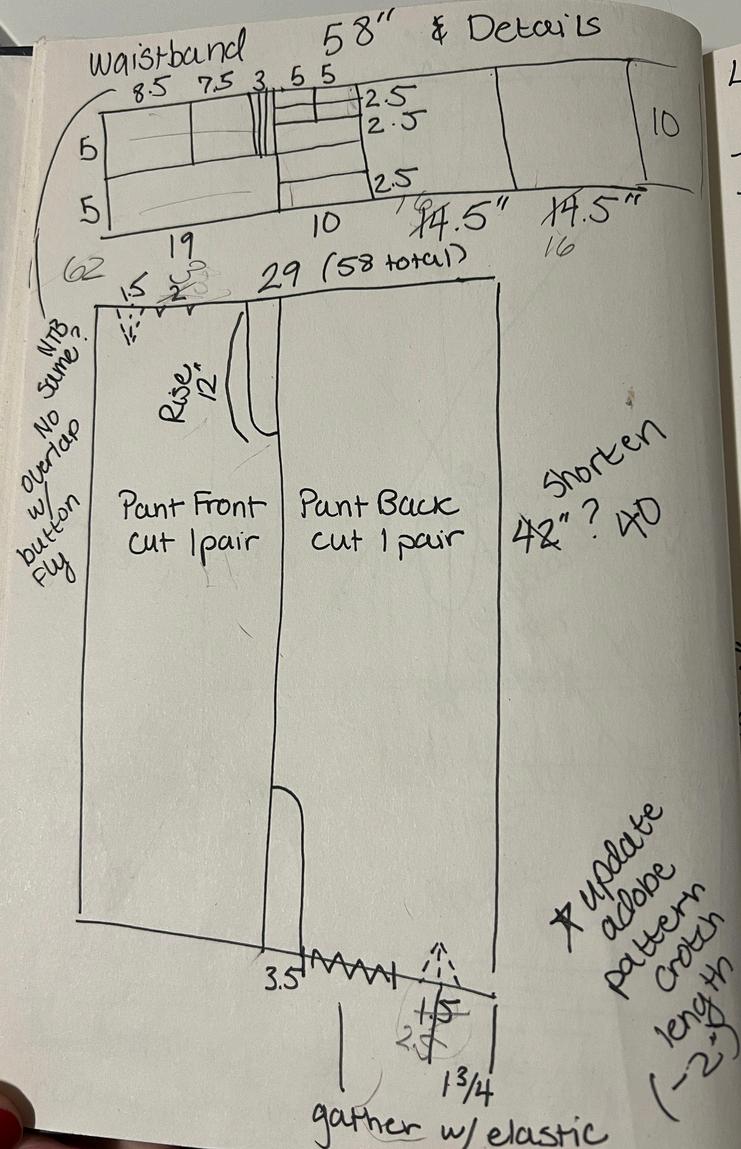 58" & Details
waistband
8.5 7.5 3 5 5
2.5
2.5
5
10
5
2.5
10
16
14.5" 14.5"
16
19
62
29 (58 total)
1.5 2
NTB
Same?
No
overlap
w/
button
Fly
Rise
12"
Shorten
42"? 40
Pant Front
cut 1 pair
Pant Back
cut 1 pair
* update
adobe
pattern
crotch
length
(-2")
3.5
1.5
2.5
1 3/4
gather w/ elastic